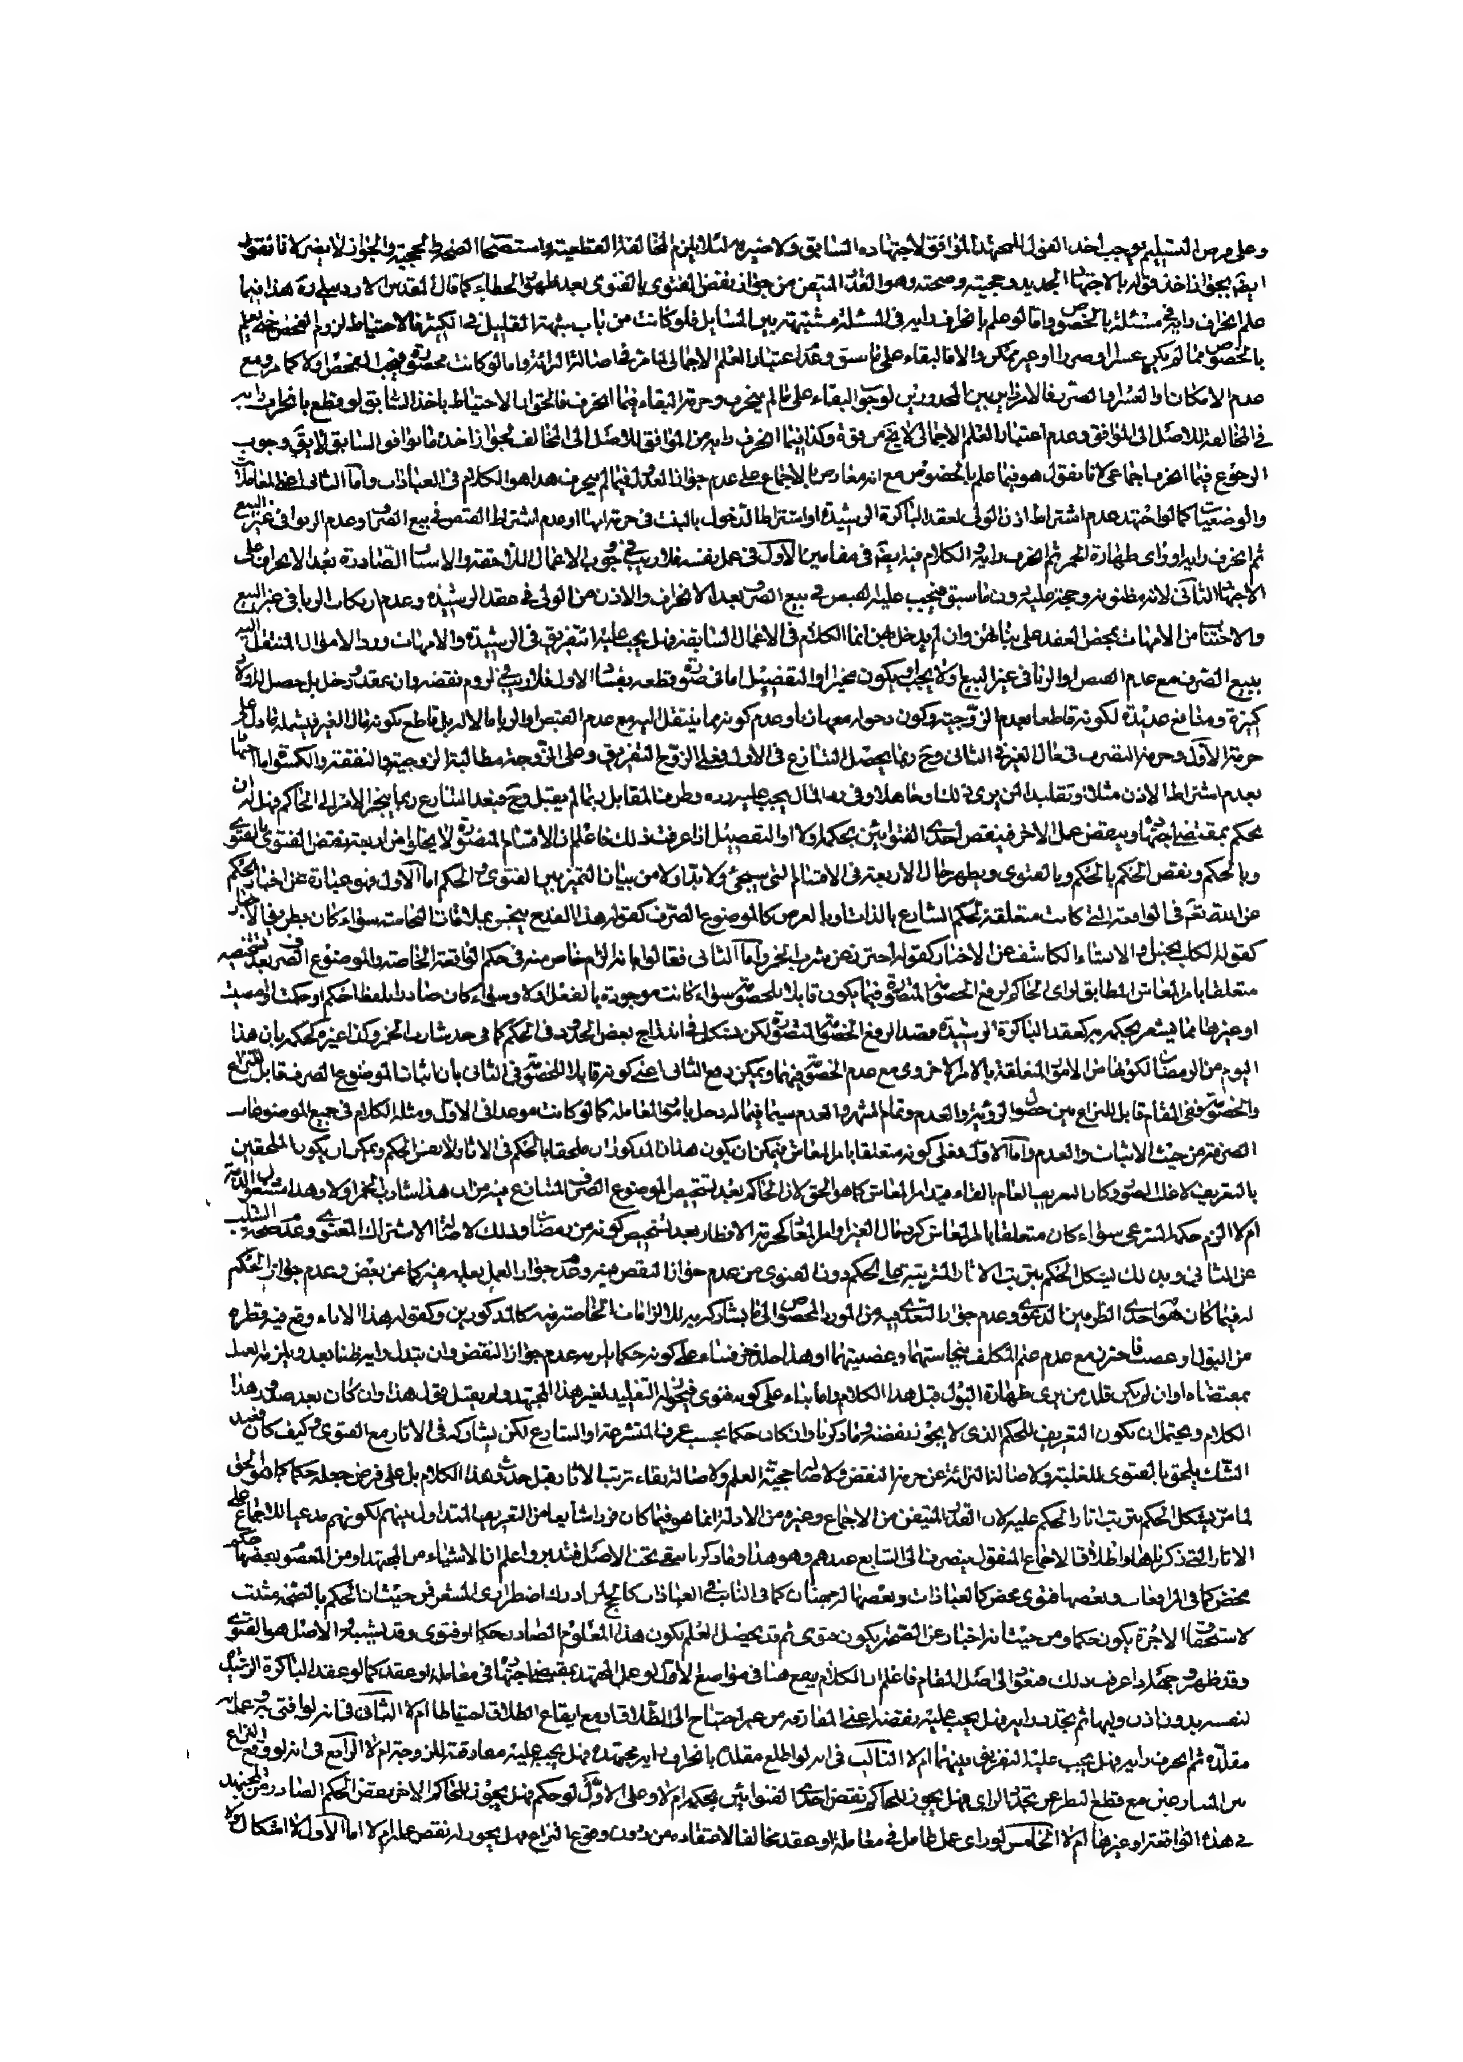 وعلى فرض التسليم يوجب اخذ القول للمجتهد الموافق لاجتهاده السابق ولا ضير فيه لئلا يلزم المخالفة القطعية واستصحاب الحجية والجواز لا يضر لانا نقول
ايضا يجوز اخذ قوله بالاجتهاد الجديد وحجيته وصحته وهو القدر المتيقن من جواز نقض الفتوى بالفتوى بعد ظهور الخطاء كما قال المقدس الاردبيلي ره هذا فيما
علم انحراف رايه في مسئلة بالخصوص واما لو علم بانحراف رايه في المسئلة مشتبهة بين المسائل فلو كانت من باب شبهة القليل في الكثير فالاحتياط لزوم الفحص حتى يعلم
بالخصوص مما لم يكن عسرا وضررا او غير ممكن والا فالبقاء على ما سبق وعدم اعتبار العلم الاجمالي لما مر في اصالة البرائة واما لو كانت محصورة فيجب الفحص اولا كما مر ومع
عدم الامكان والعسر والضرر فالامر داير بين المحذورين لوجوب البقاء على ما لم ينحرف وحرمة البقاء فيما انحرف فالجواب الاحتياط باخذ السابق لو قطع بانحراف رايه
في المخالفة للاصل الى الموافق وعدم اعتبار العلم الاجمالي لا يخ من قوة وكذا فيما انحرف رايه من الموافق للاصل الى المخالف لجواز اخذ ما يوافق السابق لا يق وجوب
الرجوع فيما انحرف اجماعي لانا نقول هو فيما علم بالخصوص مع انه معارض بالاجماع على عدم جواز العدول فيما لم ينحرف هذا هو الكلام في العبادات واما الثاني اعني المعاملات
والوضعيات كما لو اجتهد عدم اشتراط اذن الولي لعقد الباكرة الرشيدة او اشتراط الدخول بالبنت في حرمة امها او عدم اشتراط القبض في بيع الصرف وعدم الربوا في غير البيع
ثم انحرف رايه او راى طهارة الخمر ثم انحرف رايه والكلام فيه ايضا في مقامين الاول في عمل نفسه فلا ريب في وجوب الاعمال اللاحقة والاسباب الصادرة بعد الانحراف على
الاجتهاد الثاني لانه مظنونه وحجة عليه دون ما سبق فيجب عليه القبض في بيع الصرف بعد الانحراف والاذن من الولي في عقد الرشيدة وعدم ارتكاب الربا في غير البيع
والاجتناب من الامهات بمحض العقد على بناتهن وان لم يدخل بهن انما الكلام في الاعمال السابقة فهل يجب عليه التفريق في الرشيدة والامهات ورد الاموال المنتقل اليه
ببيع الصرف مع عدم القبض او الربا في غير البيع ولا يجب او يكون مخيرا او التفصيل اما في صورة قطعه بفساد الاول فلا ريب في لزوم نقضه وان بعقد ودخل بل حصل له اولاد
كثيرة ومنافع عديدة لكونه قاطعا بعدم الزوجية وكون دخوله معها زنا وعدم كونه مما ينتقل اليه مع عدم القبض او الربا مالا له بل قاطع بكونه مال الغير فيشمله ما دل على
حرمة الاول وحرمة التصرف في مال الغير في الثاني وح ربما يحصل التنازع في الاول فعلى الزوج التفريق وعلى الزوجة مطالبة الزوجية والنفقة والكسوة اما اجتهادا
بعدم اشتراط الاذن مثلا او تقليدا لمن يرى ذلك وهكذا وفي رد المال يجب عليه رده وطرف المقابل ربما لم يقبل وح فبعد التنازع ربما ينجر الامر الى الحاكم فهل له ان
يحكم بمقتضى اجتهاده وينقض عمل الاخر فينقض احدى الفتوائين بحكمه اولا او التفصيل اذا عرفت ذلك فاعلم ان الاقسام المتصورة لا يخلو من اربعة نقض الفتوى بالفتوى
وبالحكم ونقض الحكم بالحكم وبالفتوى ويظهر حال الاربعة في الاقسام التي سيجئ ولا بد اولا من بيان التميز بين الفتوى والحكم اما الاول فهو عبارة عن اخبار الحكم
عن الله تعم في الواقعة التي كانت متعلقة لحكم الشارع بالذات او بالعرض كالموضوع الصرف كقوله هذا القدح ينجس بملاقات النجاسة سواء كان بطريق الاخبار
كقوله الكلب نجس او الانشاء الكاشف عن الاخبار كقوله احترز عن شرب الخمر واما الثاني فقالوا بانه الزام خاص منه في حكم الواقعة الخاصة والموضوع الصرف بعد تشخيصه
متعلقا بامر المعاش المطابق لراى الحاكم لرفع الخصومة المتصورة فيما يكون قابلا للخصومة سواء كانت موجودة بالفعل اولا وسواء كان صادرا بلفظ احكم او حكمت او امضيت
او غيرها مما يشعر بحكمه كعقد الباكرة الرشيدة مقصد الرفع الخصومة المتصورة لكن يشكل في اندراج بعض الحدود في الحكم كما في حد شارب الخمر وكذا غيره كحكمه بان هذا
اليوم من الرمضان لكونهما من الامور المتعلقة بالامر الاخروى مع عدم الخصومة فيهما ويمكن دفع الثاني اعني كونه قابلا للخصومة في الثاني بان اثبات الموضوع الصرف قابل للنزاع
والخصومة ففي المقام قابل للنزاع بين حصول الرؤية والعدم وتمام الشهر والعدم سيما فيما له دخل بامور المعاملة كما لو كانت موعدا في الاول ومثله الكلام في جميع الموضوعات
الصرفة من حيث الاثبات والعدم واما الاول فعلى كونه متعلقا بامر المعاش فيمكن ان يكون هذان المذكوران ملحقا بالحكم في الاثار لا نفس الحكم ويمكن ان يكون الملحقين
بالتعريف لاغلب الصور وكان التعريف العام بالقاء قيد امر المعاش كما هو الحق لان الحاكم بعد تشخيص الموضوع الصرف المتنازع فيه من ان هذا شارب الخمر اولا وهذا مشغول الذمة
ام لا الزم حكمه الشرعي سواء كان متعلقا بامر المعاش كرد مال الغير او امر المعاد كحرمة الافطار بعد تشخيص كونه من رمضان وذلك لاصالة الاشتراك المعنوي وعدم صحة السلب
عن الثاني وبدون ذلك يشكل الحكم بترتب الاثار المترتبة على الحكم دون الفتوى من عدم جواز النقض فيه وعدم جواز العمل بعلمه فيه كما عن بعض وعدم جواز الحكم
له فيما كان هو احدى الطرفين الدعوى وعدم جواز التعدي فيه من المورد المخصوص الى ما يشاركه فيه للالزامات الخاصة فيه كالمذكورين وكقوله هذا الاناء وقع فيه قطرة
من البول او عصير فاحترز مع عدم علم المكلف بنجاستهما او عصيتهما او هذا حلف فبناء على كونه حكما يلزمه عدم جواز النقض وان تبدل رايه ظنا بعده ويلزمه العمل
بمقتضاه وان لم يكن قلده من يرى طهارة البول قبل هذا الكلام واما بناء على كونه فتوى فيجوز له التقليد لغير هذا المجتهد ولم يقبل قوله هذا وان كان بعد صدور هذا
الكلام ويحتمل ان يكون التعريف للحكم الذي لا يجوز نقضه وما ذكرنا وان كان حكما بحسب عرف المتشرعة او الشارع لكن يشاركه في الاثار مع الفتوى وكيف كان فعند
الشك يلحق بالفتوى للغلبة ولاصالة البرائة عن حرمة النقض ولاصالة حجية العلم ولاصالة بقاء ترتب الاثار قبل حدوث هذا الكلام بل على فرض جعله حكما كما هو الحق
لما مر يشكل الحكم بترتب اثار الحكم عليه لان القدر المتيقن من الاجماع وغيره من الادلة انما هو فيما كان فردا شايعا من التعريف المتداول بينهم لكونهم مدعيا للاجماع على
الاثار التي ذكرناها واطلاق الاجماع المنقول ينصرف الى الشايع عندهم وهو هذا وما ذكرنا بقي تحت الاصل فتدبر واعلم ان الاشياء من المجتهد او من المعصوم بعضها حكم
محض كما في المرافعات وبعضها فتوى محض كالعبادات وبعضها لوجهتان كما في النائب في العبادات كالحج اذا ادرك اضطرارى المشعر فمن حيث ان الحكم بالصحة مثبت
لاستحقاق الاجرة يكون حكما ومن حيث انه اخبار عن الصحة يكون فتوى ثم قد يحصل العلم بكون هذا المعلوم الصادر حكما او فتوى وقد يشتبه والاصل هو الفتوى
وقد ظهر وجهه اذا عرفت ذلك فنقول الى اصل المقام فاعلم ان الكلام يقع هنا في مواضع الاول لو عمل المجتهد بمقتضى اجتهاده في معاملة او عقد كما لو عقد الباكرة الرشيدة
لنفسه بدون اذن وليها ثم تجدد رايه فهل يجب عليه نقضه اعني المفارقة من غير احتياج الى الطلاق او مع ايقاع الطلاق احتياطا ام لا الثاني في انه لو افتى به وعمل به
مقلده ثم انحرف رايه فهل يجب عليه التفريق بينهما ام لا الثالث في انه لو اطلع مقلده بانحراف راى مجتهده فهل يجب عليه مفارقته للزوجة ام لا الرابع في انه لو وقع النزاع
بين المتنازعين مع قطع النظر عن تجدد الراى فهل يجوز للحاكم نقض احدى الفتوائين بحكمه ام لا وعلى الاول لو حكم فهل يجوز للحاكم الاخر نقض الحكم الصادر من المجتهد
في هذه الواقعة او غيرها ام لا الخامس لو راى عمل عامل في معاملة او عقد مخالفا لاعتقاده من دون وقوع النزاع فهل يجوز له نقض عمله ام لا اما الاول فلا اشكال اولا